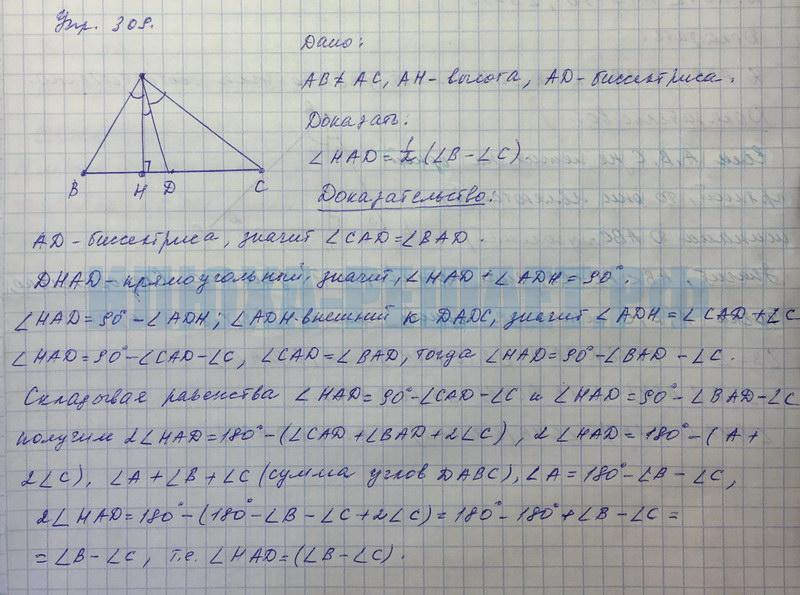 Упр. 309.
Дано:
AB ≠ AC, AH - высота, AD - биссектриса.
Доказать:
∠HAD = 1/2 (∠B - ∠C)
Доказательство:
B H D C
AD - биссектриса, значит ∠CAD = ∠BAD.
DHAD - прямоугольный, значит, ∠HAD + ∠ADH = 90°.
∠HAD = 90° - ∠ADH; ∠ADH - внешний к DADC, значит ∠ADH = ∠CAD + ∠C
∠HAD = 90° - ∠CAD - ∠C, ∠CAD = ∠BAD, тогда ∠HAD = 90° - ∠BAD - ∠C.
Складывая равенства ∠HAD = 90° - ∠CAD - ∠C и ∠HAD = 90° - ∠BAD - ∠C
получим 2∠HAD = 180° - (∠CAD + ∠BAD + 2∠C), 2∠HAD = 180° - (A +
2∠C), ∠A + ∠B + ∠C (сумма углов DABC), ∠A = 180° - ∠B - ∠C,
2∠HAD = 180° - (180° - ∠B - ∠C + 2∠C) = 180° - 180° + ∠B - ∠C =
= ∠B - ∠C, т.е. ∠HAD = (∠B - ∠C).